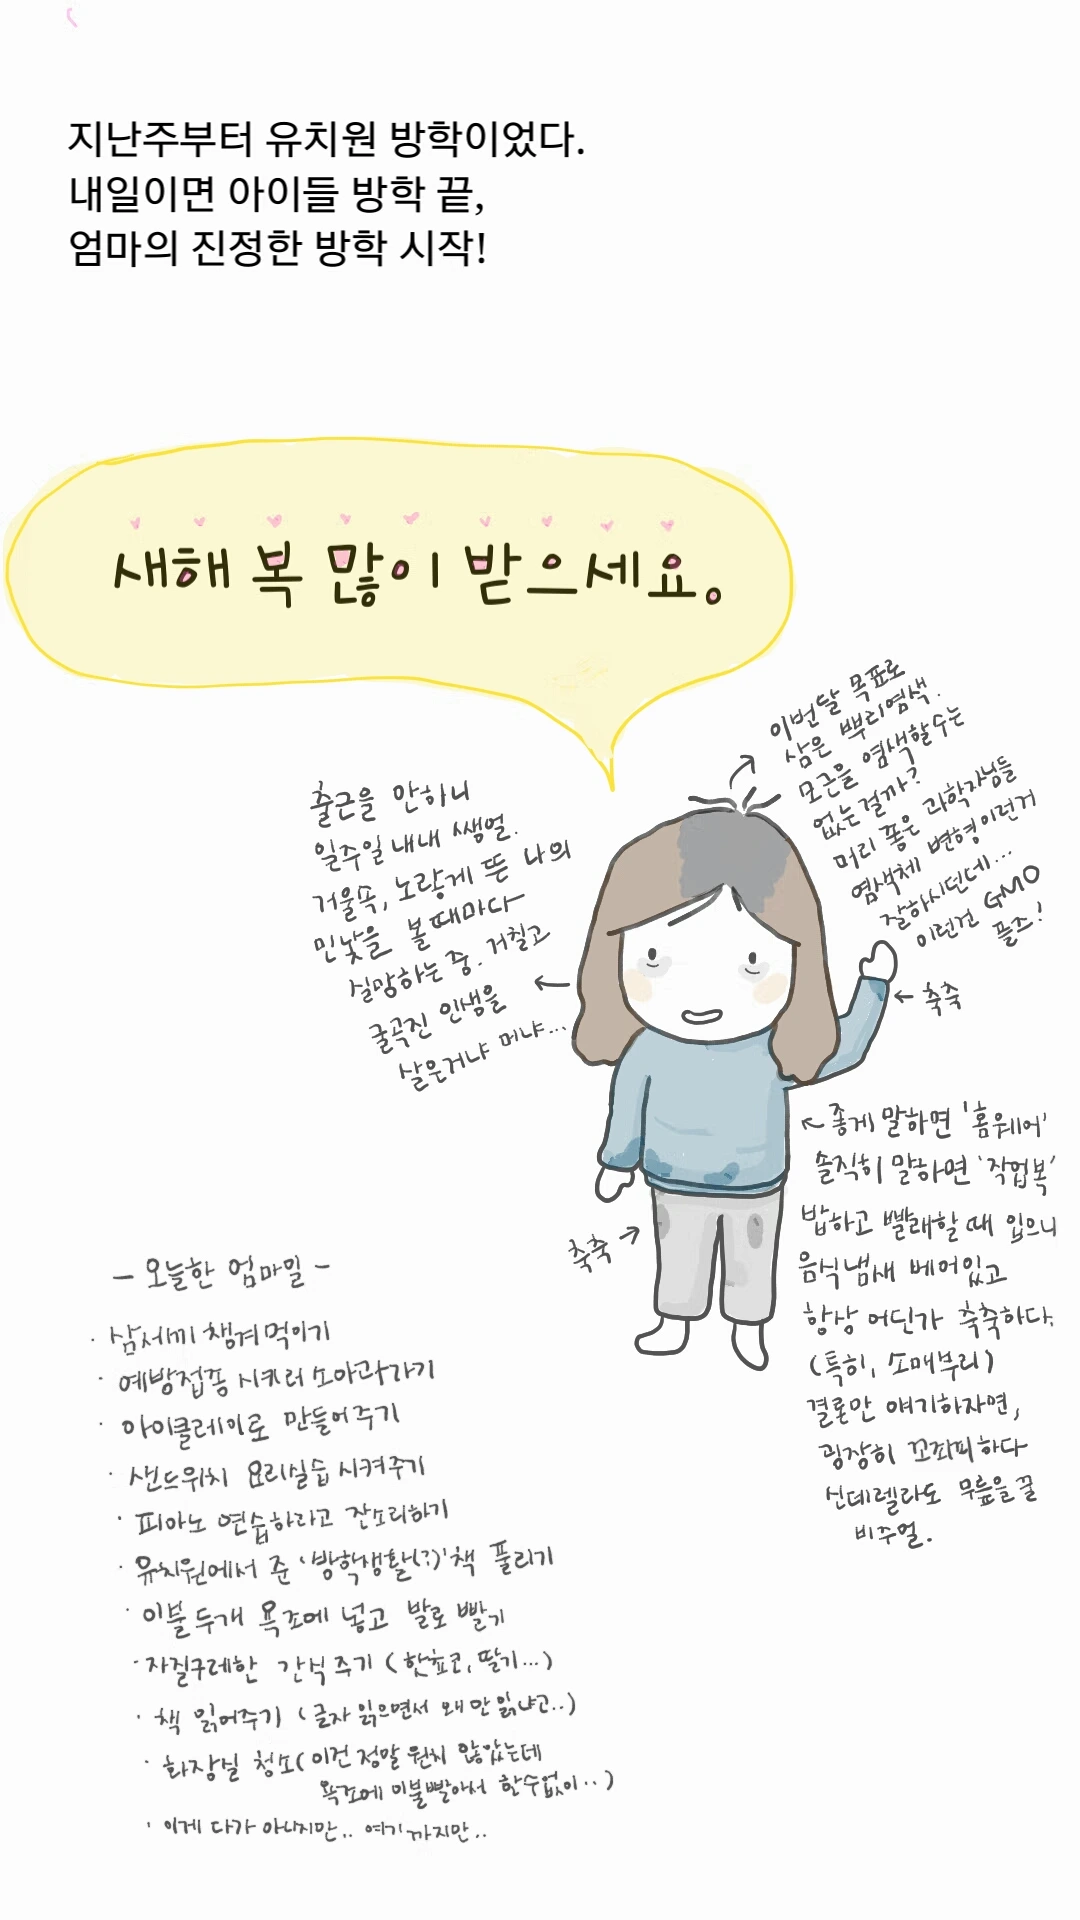 지난주부터 유치원 방학이었다.
내일이면 아이들 방학 끝,
엄마의 진정한 방학 시작!
새해 복 많이 받으세요.
이번달 목표로
삼은 뿌리염색.
모근을 염색할수는
없는걸까?
머리 좋은 과학자님들
염색체 변형이런거
잘하시던데...
이런건 GMO
플즈!
출근을 안하니
일주일내내 쌩얼.
거울속, 노랗게 뜬 나의
민낯을 볼때마다
실망하는 중. 거칠고
굴곡진 인생을
살은거냐 머냐...
← 축축
← 좋게 말하면 '홈웨어'
솔직히 말하면 '작업복'
밥하고 빨래할 때 입으니
음식냄새 베어있고
항상 어딘가 축축하다.
(특히, 소매부리)
결론만 얘기하자면,
굉장히 꼬죄죄하다
신데렐라도 무릎을꿀
비주얼.
축축 →
- 오늘한 엄마일 -
· 삼세끼 챙겨먹이기
· 예방접종 시키러 소아과가기
· 아이클레이로 만들어주기
· 샌드위치 요리실습 시켜주기
· 피아노 연습하라고 잔소리하기
· 유치원에서 준 '방학생활(?)'책 풀리기
· 이불두개 욕조에 넣고 발로 빨기
· 자질구레한 간식주기 (핫쵸코, 딸기...)
· 책 읽어주기 (글자 읽으면서 왜 안읽냐고..)
· 화장실 청소(이건 정말 원치 않았는데
욕조에 이불빨아서 할수없이..)
· 이게 다가 아니지만.. 여기까지만..